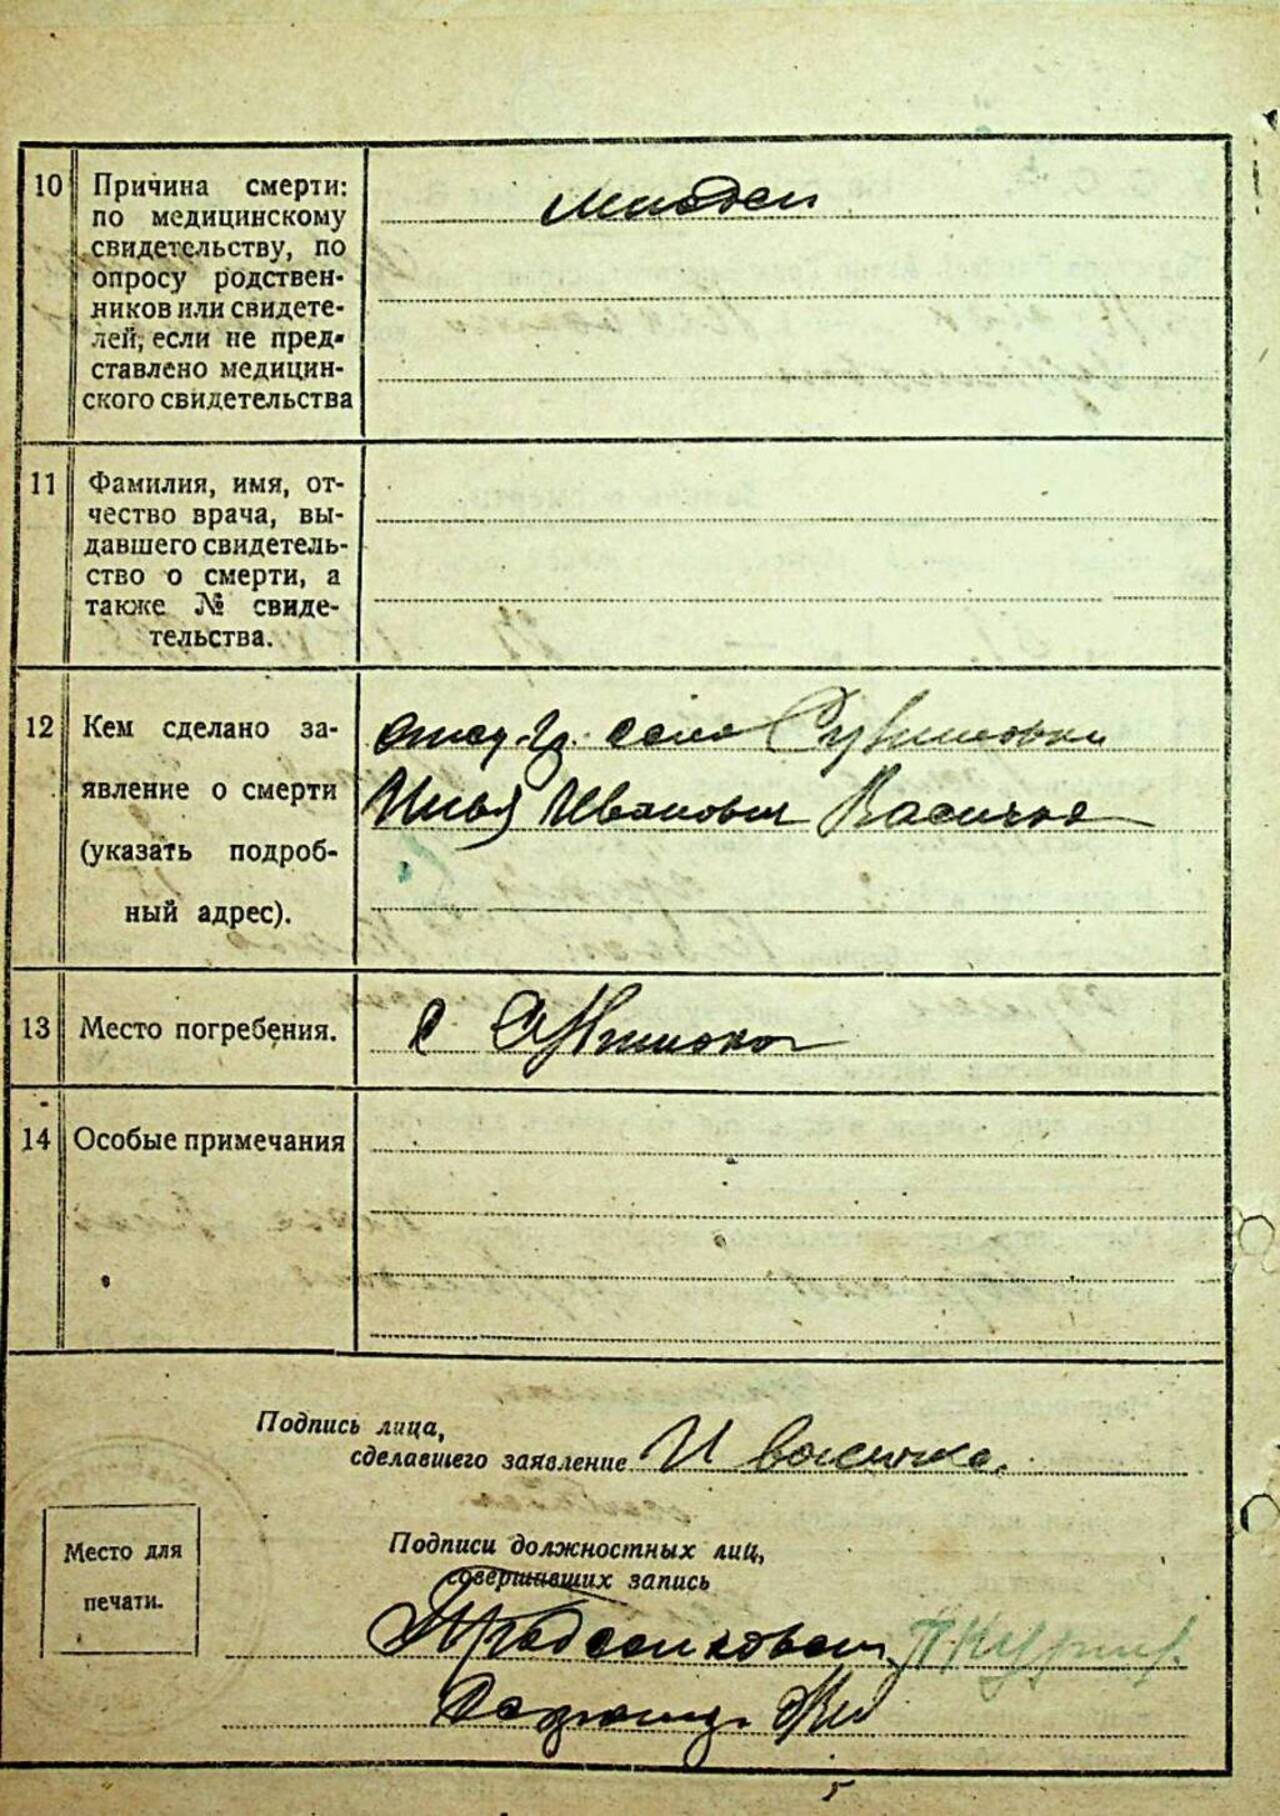 10 Причина смерти:
по медицинскому
свидетельству, по
опросу родствен-
ников или свидете-
лей, если не пред-
ставлено медицин-
ского свидетельства
11 Фамилия, имя, от-
чество врача, вы-
давшего свидетель-
ство о смерти, а
также № свиде-
тельства.
12 Кем сделано за-
явление о смерти
(указать подроб-
ный адрес).
гр. село
Илья Иванович Васичка
13 Место погребения.
с
14 Особые примечания
Подпись лица,
сделавшего заявление И Васичка.
Место для
печати.
Подписи должностных лиц,
совершивших запись